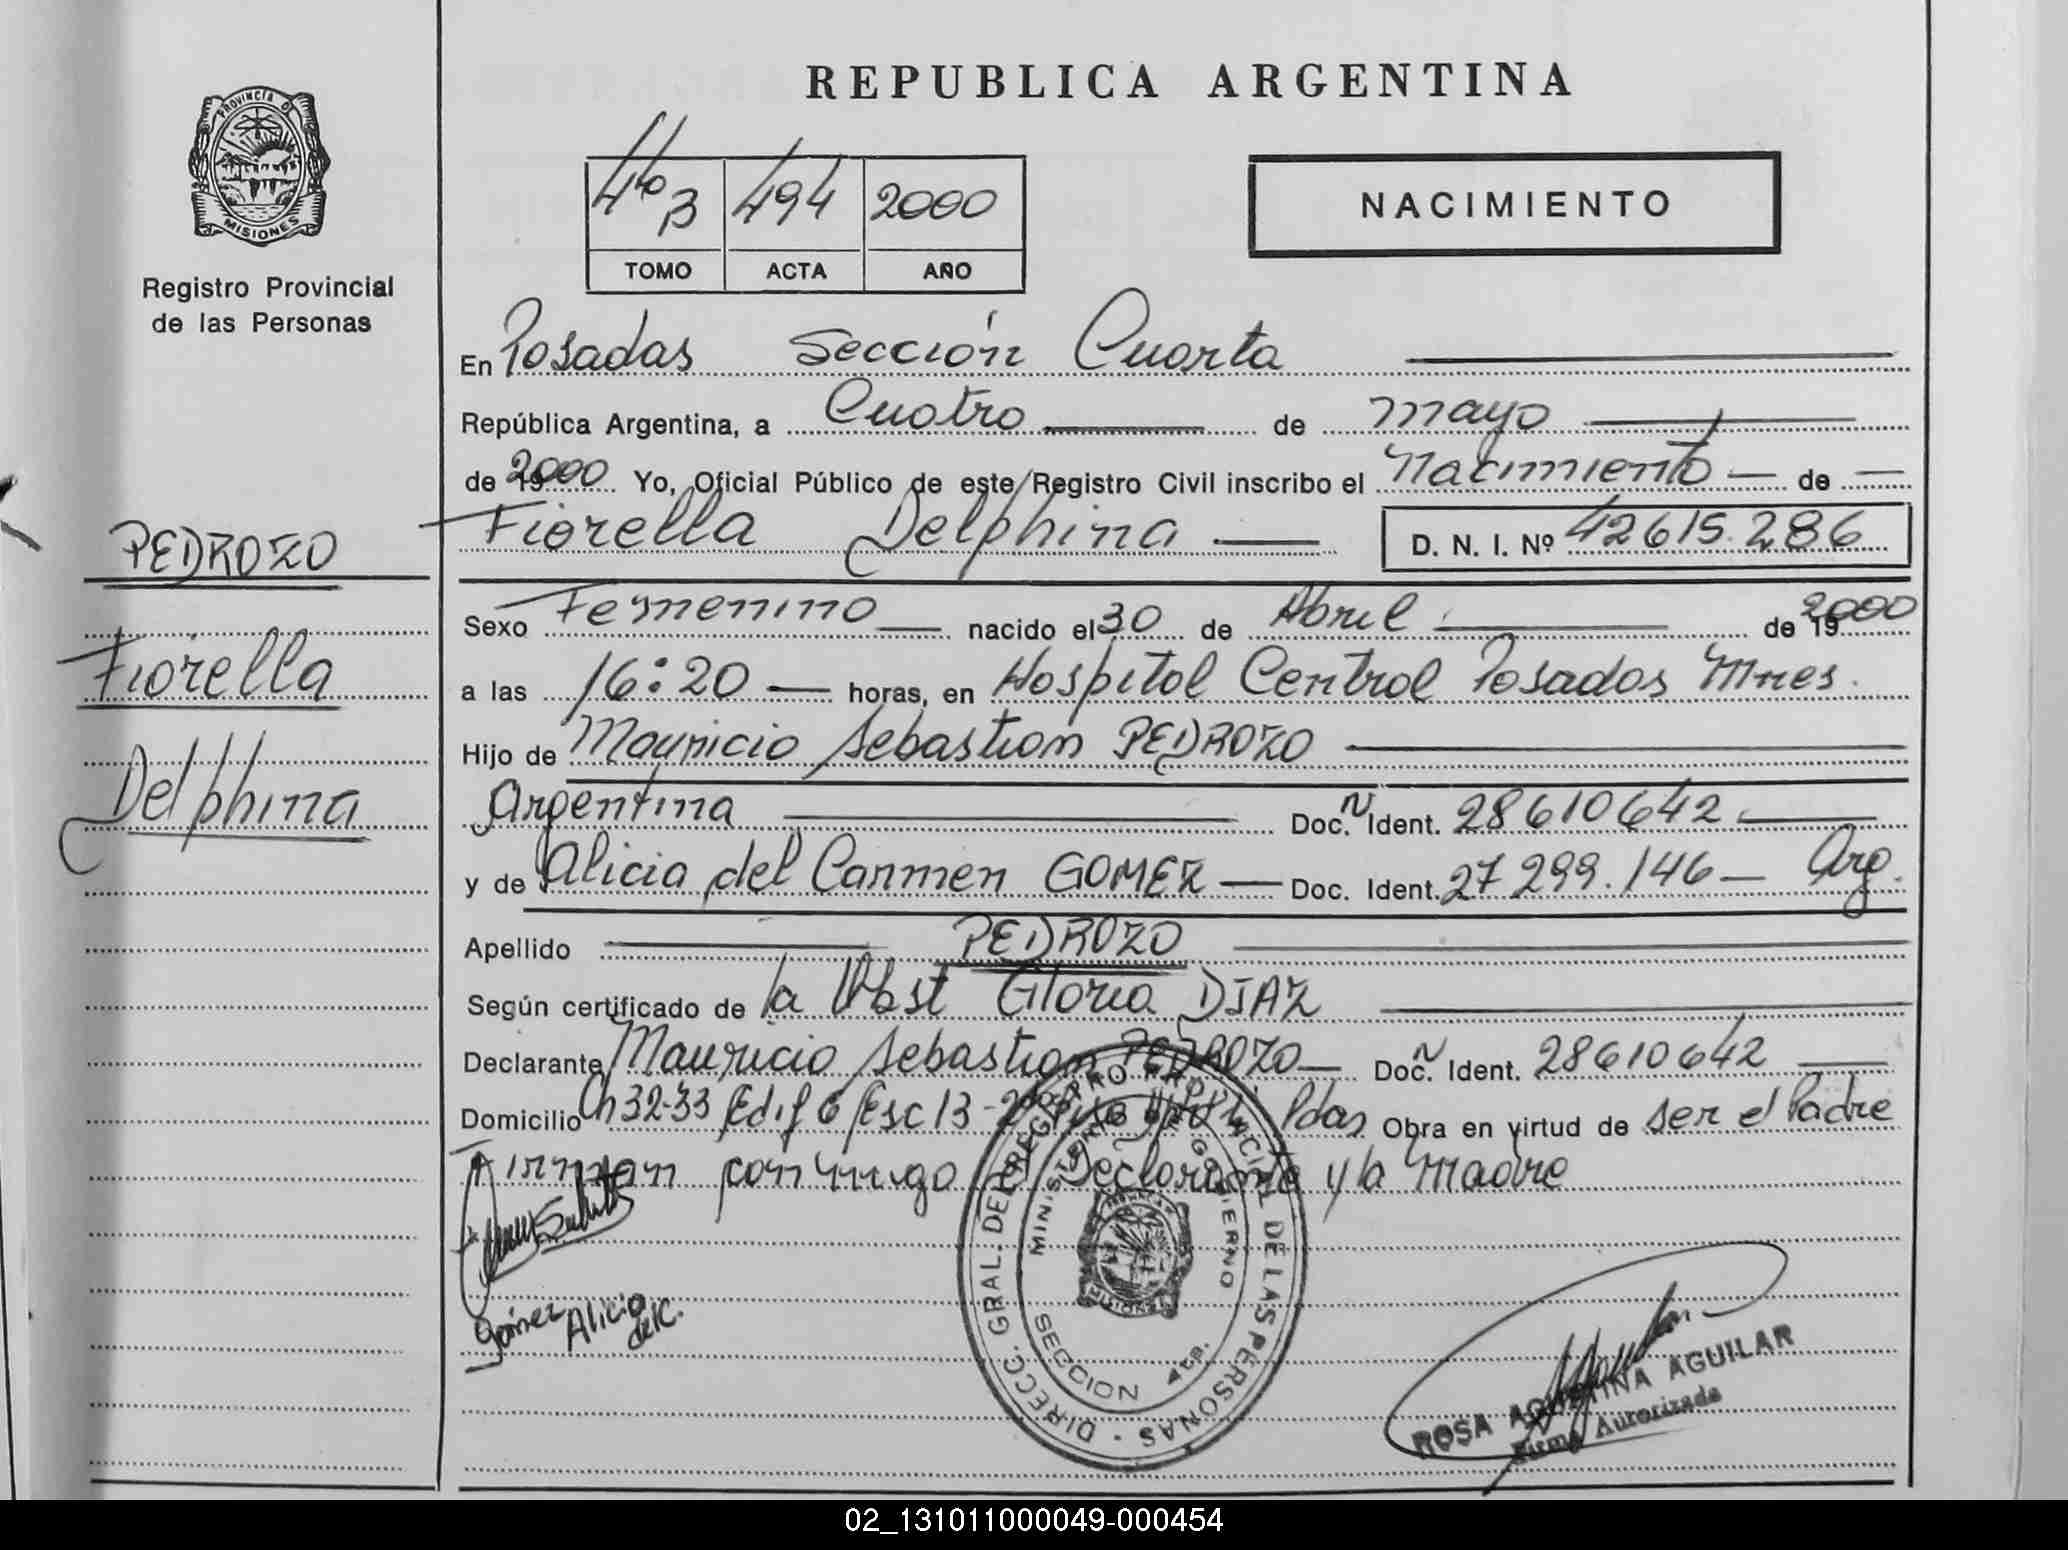 PROVINCIA D
MISIONES
Registro Provincial
de las Personas
PEDROZO
Fiorella
Delphina
REPUBLICA ARGENTINA
4to B 494 2000
TOMO ACTA AÑO
NACIMIENTO
En Posadas Sección Cuarta
República Argentina, a Cuatro de mayo
de 2000 Yo, Oficial Público de este Registro Civil inscribo el Nacimiento de
Fiorella Delphina D. N. I. Nº 42615.286
Sexo Femenino nacido el 30 de Abril de 2000
a las 16:20 horas, en Hospital Central Posadas Mnes.
Hijo de Mauricio Sebastian PEDROZO
Argentina Doc. N Ident. 28610642
y de Alicia del Carmen GOMEZ Doc. Ident. 27299.146 Arg.
Apellido PEDROZO
Según certificado de la Obst Gloria DIAZ
Declarante Mauricio Sebastian PEDROZO Doc. N Ident. 28610642
Domicilio Ch 32-33 Edif 6 Esc 13 - Pdas Obra en virtud de ser el Padre
Firman conmigo el Declarante y la Madre
Gómez Alicia
del C.
DIRECC. GRAL. DEL REGISTRO PROVINCIAL DE LAS PERSONAS
MINISTERIO DE GOBIERNO
MISIONES
SECCION 4ta.
ROSA AGUSTINA AGUILAR
Firma Autorizada
02_131011000049-000454